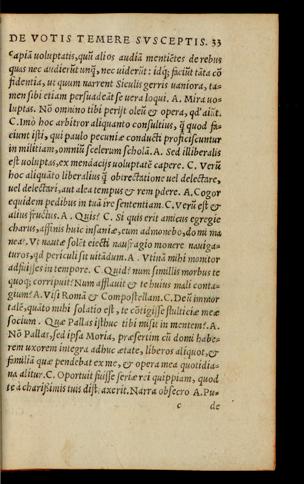 DE VOTIS TEMERE SVSCEPTIS. 33
capiā voluptatis, quū alios audiā mentiētes de rebus
quas nec audierūt unq̃, nec uiderūt: idq; faciūt tāta cō
fidentia, ut quum narrent Siculis gerris uaniora, ta-
men sibi etiam persuadeāt se uera loqui. A. Mira uo-
luptas. Nō omnino tibi perijt oleū & opera, qd' aiūt.
C. Imò hoc arbitror aliquanto consultius, q̃ quod fa-
ciunt isti, qui paulo pecuniæ conducti proficiscuntur
in militiam, omniū scelerum scholā. A. Sed illiberalis
est uoluptas, ex mendacijs uoluptatē capere. C. Verū
hoc aliquāto liberalius q̃ obtrectatione uel delectare,
uel delectari, aut alea tempus & rem pdere. A. Cogor
equidem pedibus in tuā ire sententiam. C. Verū est &
alius fructus. A. Quis? C. Si quis erit amicus egregie
charus, affinis huic insaniæ, eum admonebo, domi ma
neat. Vt nautæ solēt eiecti naufragio monere nauiga-
turos, qd periculi sit uitādum. A. Vtinā mihi monitor
adfuisses in tempore. C. Quid? num similis morbus te
quoq; corripuit? Num afflauit & te huius mali conta-
gium? A. Visi Romā & Compostellam. C. Deū immor
talē, quāto mihi solatio est, te cōtigisse stulticiæ meæ
socium. Quæ Pallas isthuc tibi misit in mentem? A.
Nō Pallas, sed ipsa Moria, præsertim cū domi habe-
rem uxorem integra adhuc ætate, liberos aliquot, &
familiā quæ pendebat ex me, & opera mea quotidia-
na alitur. C. Oportuit fuisse seriæ rei quippiam, quod
te à charissimis tuis distraxerit. Narra obsecro A. Pu-
c de